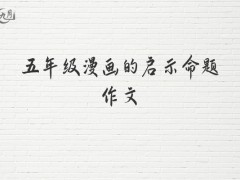 五年级漫画的启示命题
作文